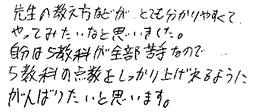 先生の教え方などが、とても分かりやすくて、
やってみたいなと思いました。
自分は5教科が全部苦手なので
5教科の点数をしっかり上げれるように
がんばりたいと思います。